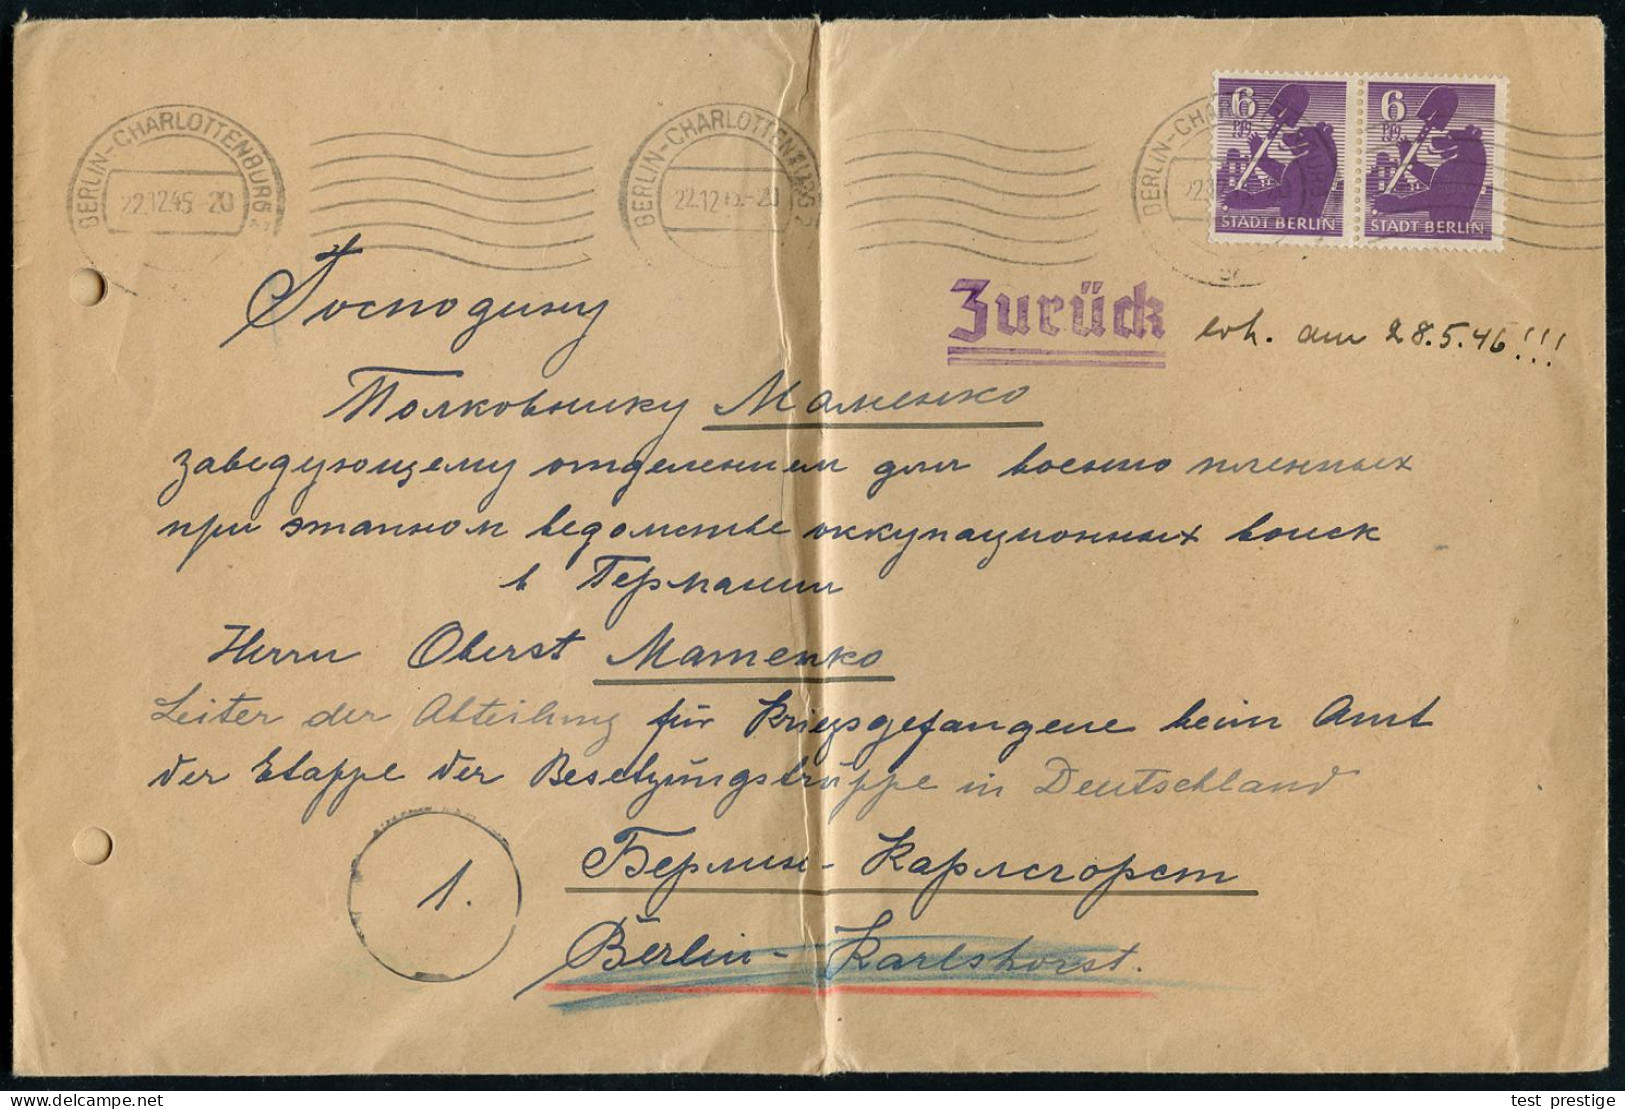 BERLIN-CHARLOTTENBURG 2
22.12.45-20
BERLIN-CHARLOTTENBURG 2
22.12.45-20
BERLIN-CHARL
6 Pfg.
STADT BERLIN
6 Pfg.
STADT BERLIN
Господину
Zurück erh. am 28.5.46!!!
Полковнику Маменко
заведующему отделением для военно пленных
при этапном ведомстве оккупационных воиск
в Германии
Herrn Oberst Mamenko
Leiter der Abteilung für Kriegsgefangene beim Amt
der Etappe der Besetzungstruppe in Deutschland
1.
Берлин-Карлсгорст
Berlin-Karlshorst.
test_prestige